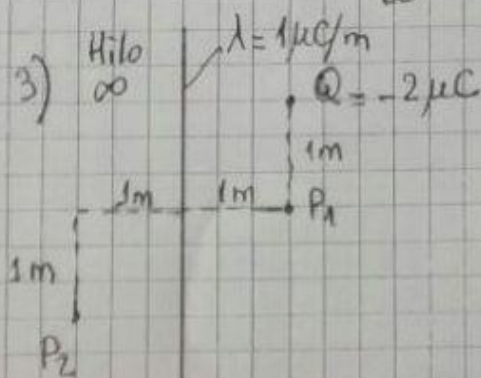 3) Hilo ∞
λ = 1 μC/m
Q = -2 μC
1m
1m 1m P₁
1m
P₂